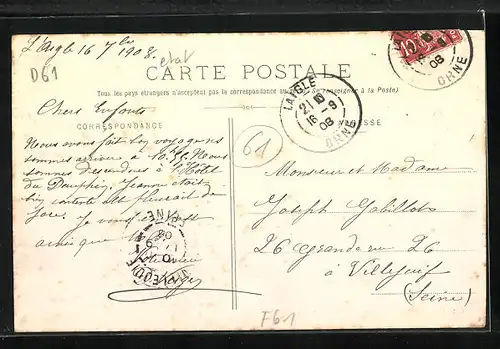 L'Aigle 16 7bre 1908.
état
D61
CARTE POSTALE
Tous les pays étrangers n'acceptent pas la correspondance au (Se renseigner à la Poste)
CORRESPONDANCE
ADRESSE
LAIGLE
21
16 - 9
08
ORNE
08
ORNE
61
Chers Enfants
Nous avons fait bon voyage ns
sommes arrivés à 10.55. Nous
sommes descendus à l'Hôtel
du Dauphin, Jeanne était
bien contente elle pleurait de
joie. Je vous
ainsi que
VILLEJUIF
08
Monsieur et Madame
Joseph Galillots
26 Grande rue 26
à Villejuif
(Seine)
F61